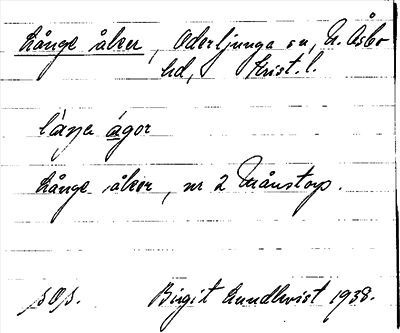 Långe åker, Oderljunga sn, N. Åsbo
hd, Krist. l.
långe åker, nr 2 Månstorp.
Birgit Lundkvist 1938.